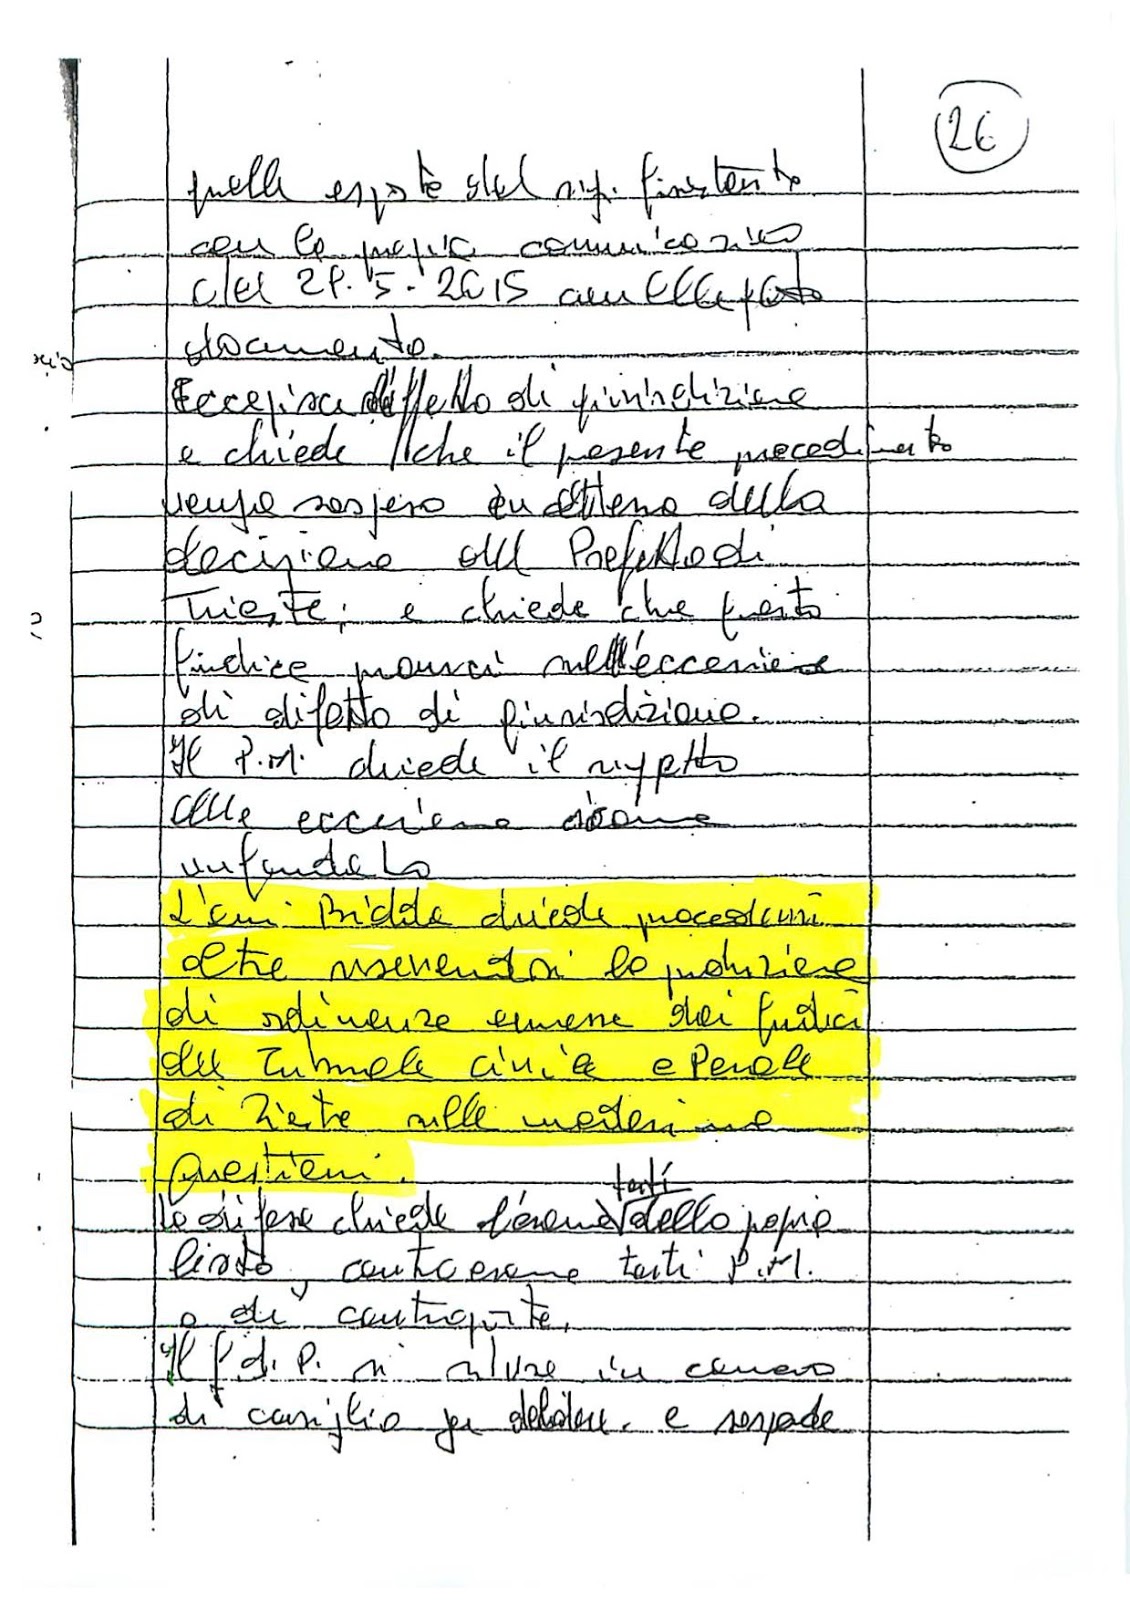 26
quelle esposte dal sig. 
con la propria comunicazione
del 28.5.2015 con allegato
documento.
Eccepisce difetto di giurisdizione
e chiede che il presente procedimento
venga sospeso in attesa della
decisione del Prefetto di
Trieste, e chiede che questo
giudice pronunci sull'eccezione
di difetto di giurisdizione.
Il P.M. chiede il rigetto
delle eccezione siccome
infondata
L'avv. chiede procedersi
oltre riservandosi la produzione
di ordinanze emesse dai giudici
del Tribunale civile e Penale
di Trieste sulle medesime
questioni.
La difesa chiede l'esame testi della propria
lista, controesame testi P.M.
e di controparte.
Il G.d.P. si ritira in camera
di consiglio per deliberare. e sospende